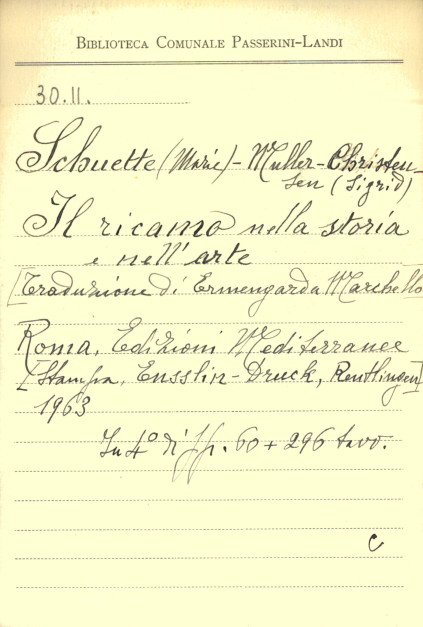 BIBLIOTECA COMUNALE PASSERINI-LANDI
30.II.
Schuette (Marie) - Muller-Christen-
sen (Sigrid)
Il ricamo nella storia
e nell'arte
[Traduzione di Ermengarda Marchello
Roma, Edizioni Mediterranee
[Stampa, Ensslin-Druck, Reutlingen]
1963
In 4° di pp. 60 + 296 tavv.
C